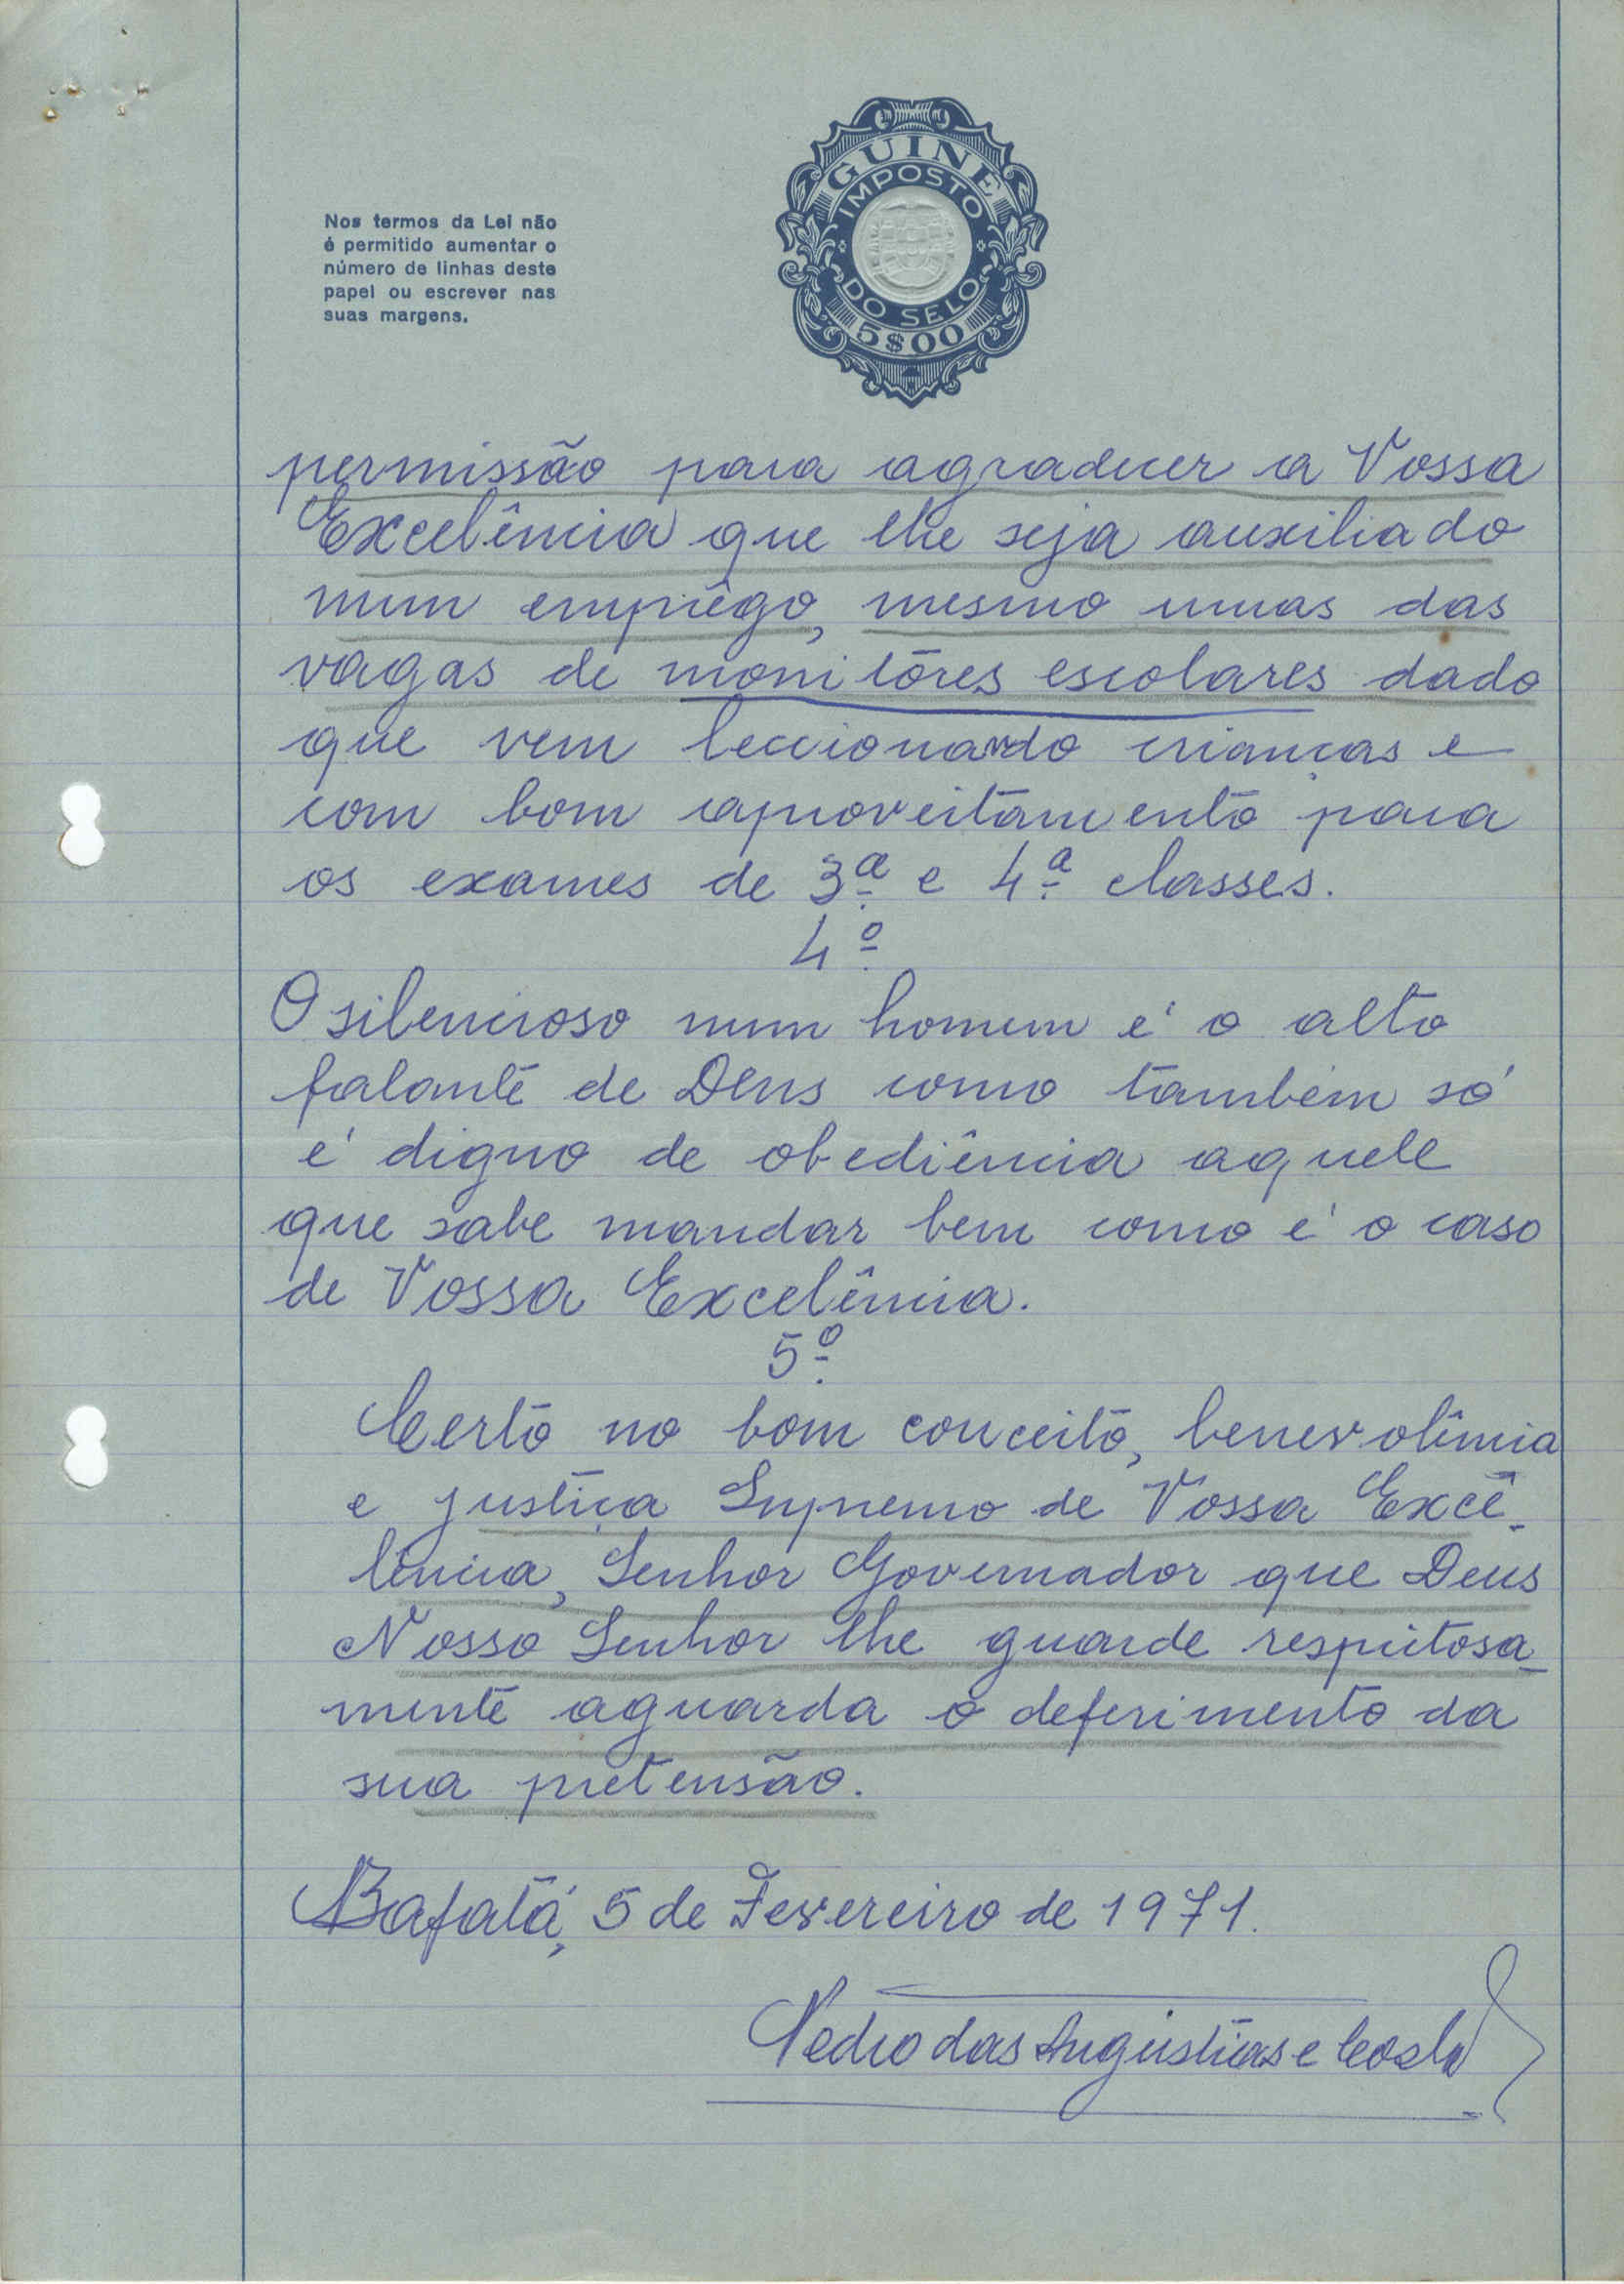 GUINÉ
IMPOSTO
DO SELO
5$00
Nos termos da Lei não
é permitido aumentar o
número de linhas deste
papel ou escrever nas
suas margens.
permissão para agradecer a Vossa
Excelência que lhe seja auxiliado
num emprêgo, mesmo umas das
vagas de monitôres escolares dado
que vem leccionando crianças e
com bom aproveitamento para
os exames de 3.ª e 4.ª classes.
4.º
O silencioso num homem é o alto
falante de Deus como também só
é digno de obediência aquele
que sabe mandar bem como é o caso
de Vossa Excelência.
5.º
Certo no bom conceito, benevolência
e justiça Supremo de Vossa Excê-
lência, Senhor Governador que Deus
Nosso Senhor lhe guarde respeitosa-
mente aguarda o deferimento da
sua pretensão.
Bafatá, 5 de Fevereiro de 1971.
Pedro das Angústias e Costa